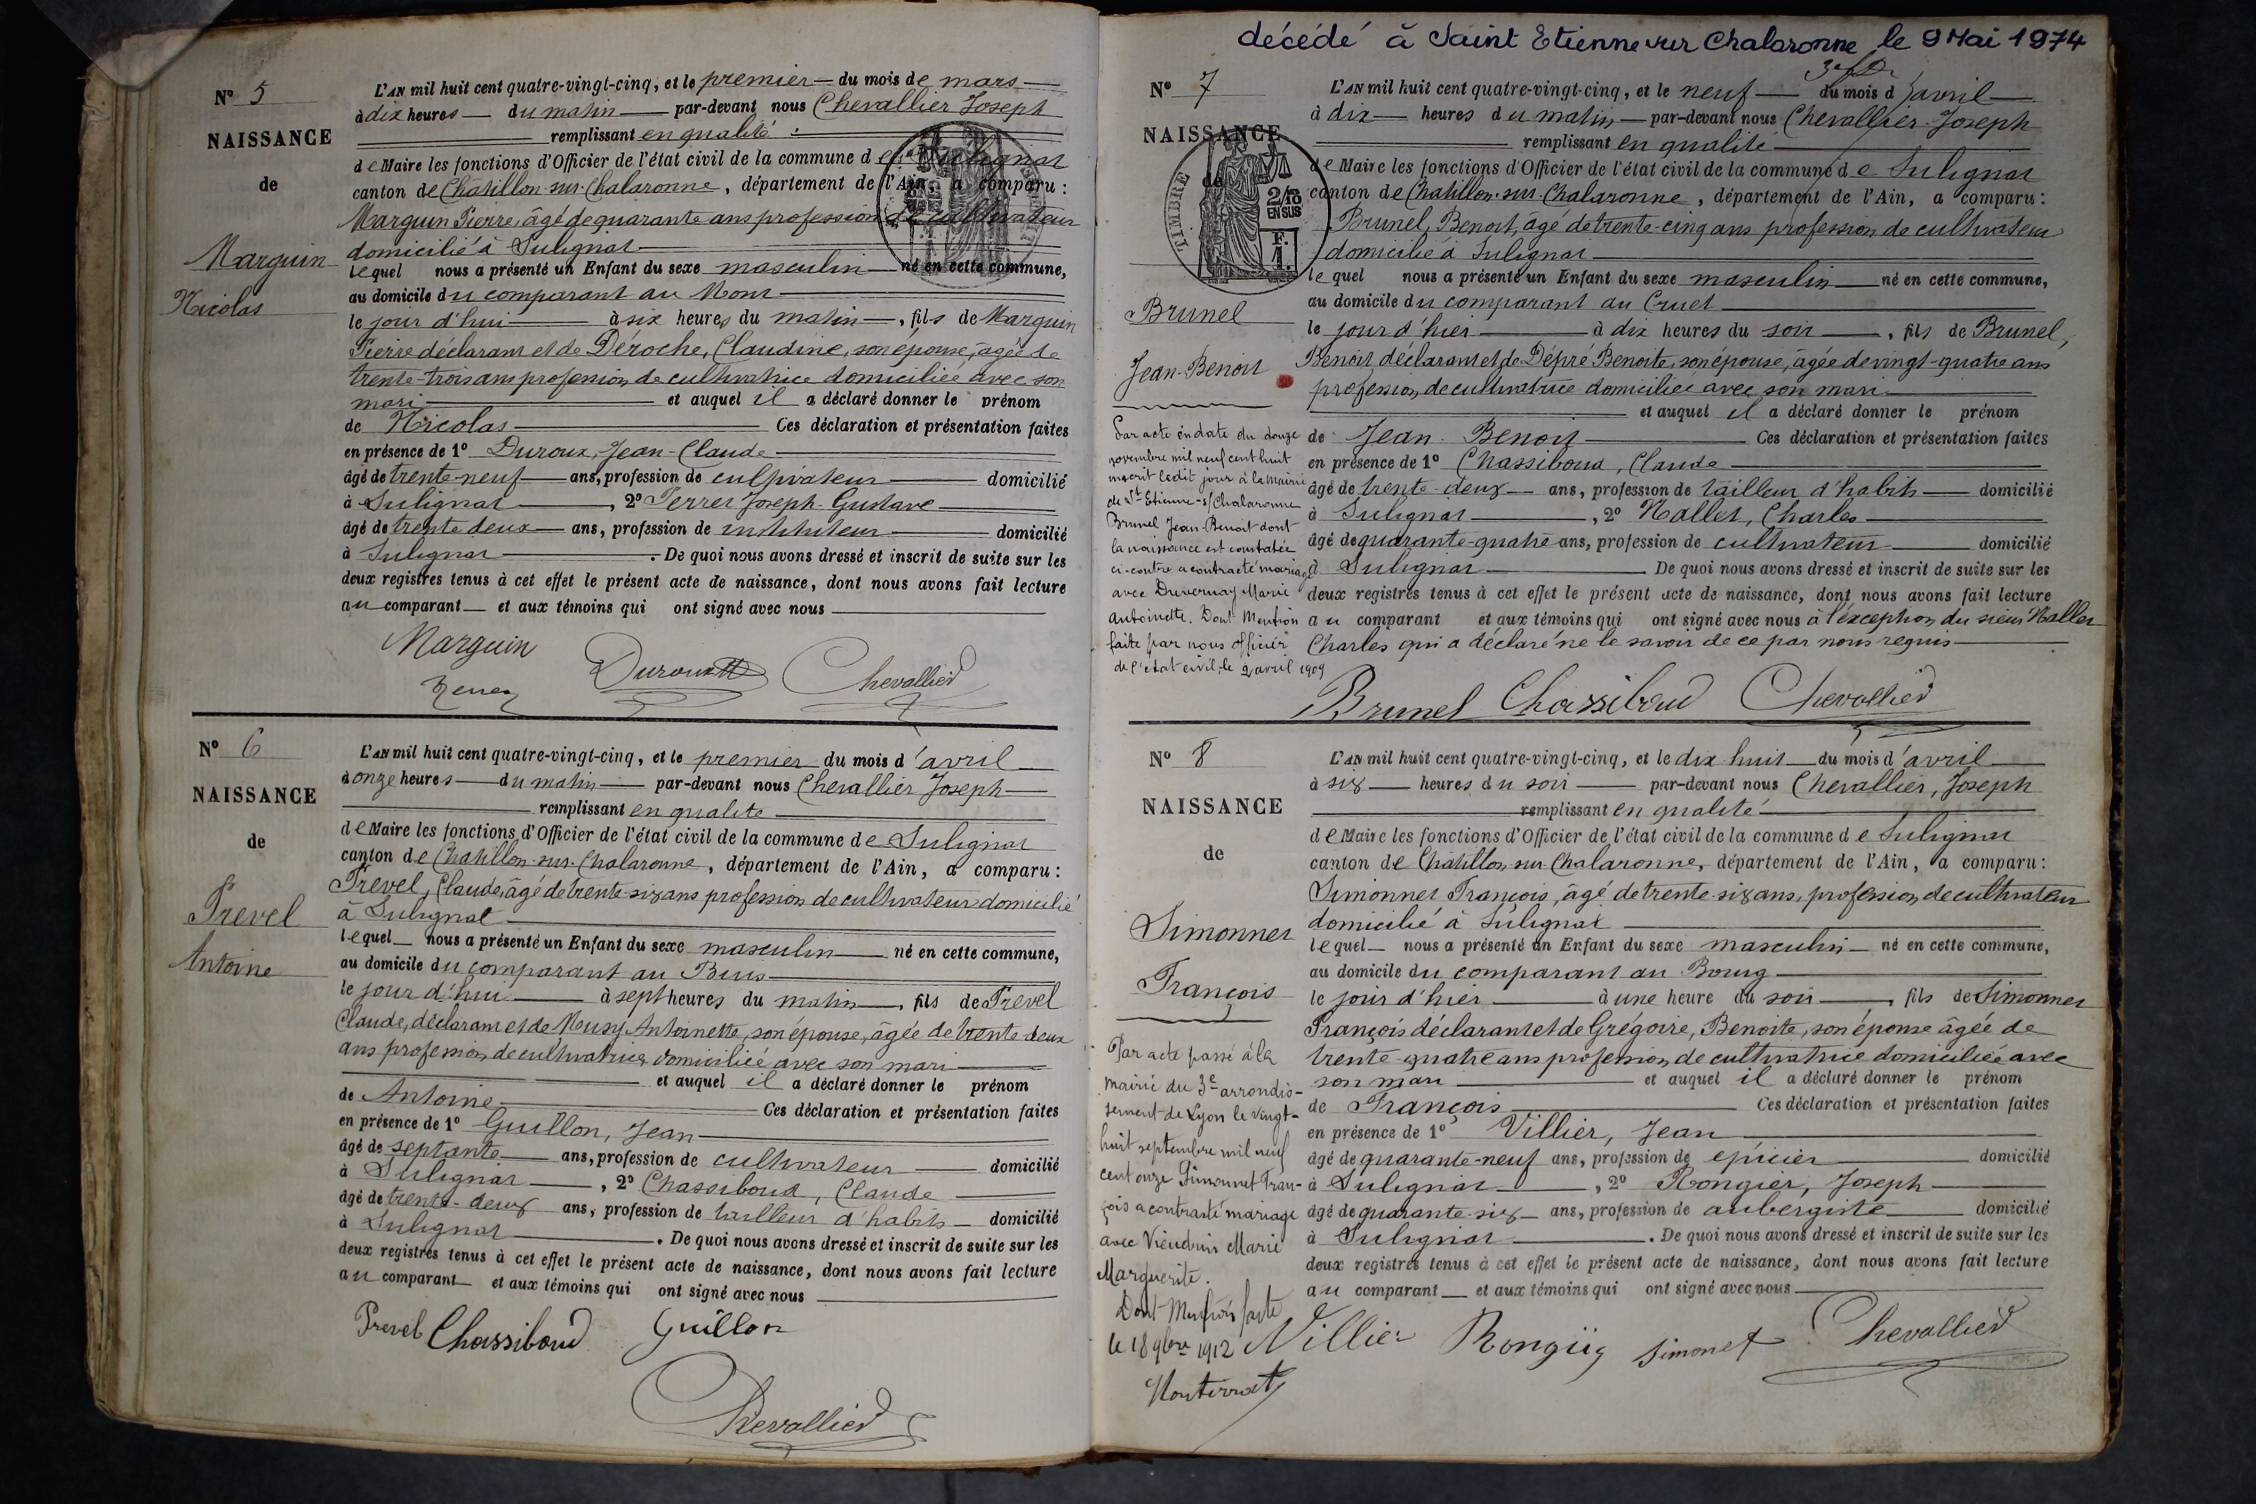 N° 5
NAISSANCE
de
Marguin
Nicolas
L'AN mil huit cent quatre-vingt-cinq, et le premier du mois de mars
à dix heures du matin par-devant nous Chevallier Joseph
remplissant en qualité
de Maire les fonctions d'Officier de l'état civil de la commune de Sulignat
canton de Châtillon-sur-Chalaronne, département de l'Ain, a comparu :
Marguin Pierre, âgé de quarante ans profession de cultivateur
domicilié à Sulignat
lequel nous a présenté un Enfant du sexe masculin né en cette commune,
au domicile du comparant au Mont
le jour d'hui à six heures du matin, fils de Marguin
Pierre déclarant et de Déroche, Claudine, son épouse, âgée de
trente-trois ans profession de cultivatrice domiciliée avec son
mari et auquel il a déclaré donner le prénom
de Nicolas Ces déclaration et présentation faites
en présence de 1° Duroux, Jean-Claude
âgé de trente-neuf ans, profession de cultivateur domicilié
à Sulignat, 2° Terrer Joseph Gustave
âgé de trente deux ans, profession de instituteur domicilié
à Sulignat. De quoi nous avons dressé et inscrit de suite sur les
deux registres tenus à cet effet le présent acte de naissance, dont nous avons fait lecture
au comparant et aux témoins qui ont signé avec nous
Marguin Duroux Chevallier
N° 6
NAISSANCE
de
Prevel
Antoine
L'AN mil huit cent quatre-vingt-cinq, et le premier du mois d'avril
à onze heures du matin par-devant nous Chevallier Joseph
remplissant en qualité
de Maire les fonctions d'Officier de l'état civil de la commune de Sulignat
canton de Châtillon-sur-Chalaronne, département de l'Ain, a comparu :
Prevel, Claude, âgé de trente-six ans profession de cultivateur domicilié
à Sulignat
lequel nous a présenté un Enfant du sexe masculin né en cette commune,
au domicile du comparant au Buis
le jour d'hui à sept heures du matin, fils de Prevel
Claude, déclarant et de Musy Antoinette, son épouse, âgée de trente deux
ans profession de cultivatrice domiciliée avec son mari
et auquel il a déclaré donner le prénom
de Antoine Ces déclaration et présentation faites
en présence de 1° Guillon, Jean
âgé de septante ans, profession de cultivateur domicilié
à Sulignat, 2° Chassiboud, Claude
âgé de trente-deux ans, profession de tailleur d'habits domicilié
à Sulignat. De quoi nous avons dressé et inscrit de suite sur les
deux registres tenus à cet effet le présent acte de naissance, dont nous avons fait lecture
au comparant et aux témoins qui ont signé avec nous
Prevel Chassiboud Guillon
Chevallier
décédé à Saint Etienne sur Chalaronne le 9 Mai 1974
N° 7
NAISSANCE
de
TIMBRE
2/10
EN SUS
F.
1.
Brunel
Jean-Benoit
Par acte en date du douze
novembre mil neuf cent huit
inscrit ledit jour à la Mairie
de St Etienne-s/Chalaronne
Brunel Jean-Benoit dont
la naissance est constatée
ci-contre a contracté mariage
avec Duvernay Marie
Antoinette. Dont Mention
faite par nous officier
de l'état civil, le 2 avril 1909
L'AN mil huit cent quatre-vingt-cinq, et le neuf du mois d'avril
à dix heures du matin par-devant nous Chevallier Joseph
remplissant en qualité
de Maire les fonctions d'Officier de l'état civil de la commune de Sulignat
canton de Châtillon-sur-Chalaronne, département de l'Ain, a comparu :
Brunel, Benoit, âgé de trente-cinq ans profession de cultivateur
domicilié à Sulignat
lequel nous a présenté un Enfant du sexe masculin né en cette commune,
au domicile du comparant au Cruet
le jour d'hier à dix heures du soir, fils de Brunel,
Benoit, déclarant et de Dépré Benoite, son épouse, âgée de vingt-quatre ans
profession de cultivatrice domiciliée avec son mari
et auquel il a déclaré donner le prénom
de Jean-Benoit Ces déclaration et présentation faites
en présence de 1° Chassiboud, Claude
âgé de trente-deux ans, profession de tailleur d'habits domicilié
à Sulignat, 2° Nallet, Charles
âgé de quarante-quatre ans, profession de cultivateur domicilié
à Sulignat. De quoi nous avons dressé et inscrit de suite sur les
deux registres tenus à cet effet le présent acte de naissance, dont nous avons fait lecture
au comparant et aux témoins qui ont signé avec nous à l'exception du sieur Nallet
Charles qui a déclaré ne le savoir de ce par nous requis
Brunel Chassiboud Chevallier
N° 8
NAISSANCE
de
Simonnet
François
Par acte passé à la
mairie du 3e arrondis-
sement de Lyon le vingt-
huit septembre mil neuf
cent onze Simonnet Fran-
çois a contracté mariage
avec Vieudrin Marie
Marguerite.
Dont Mention faite
le 18 9bre 1912
L'AN mil huit cent quatre-vingt-cinq, et le dix-huit du mois d'avril
à six heures du soir par-devant nous Chevallier, Joseph
remplissant en qualité
de Maire les fonctions d'Officier de l'état civil de la commune de Sulignat
canton de Châtillon-sur-Chalaronne, département de l'Ain, a comparu :
Simonnet François, âgé de trente-six ans, profession de cultivateur
domicilié à Sulignat
lequel nous a présenté un Enfant du sexe masculin né en cette commune,
au domicile du comparant au Bourg
le jour d'hier à une heure du soir, fils de Simonnet
François déclarant et de Grégoire, Benoite, son épouse âgée de
trente-quatre ans profession de cultivatrice domiciliée avec
son mari et auquel il a déclaré donner le prénom
de François Ces déclaration et présentation faites
en présence de 1° Villier, Jean
âgé de quarante-neuf ans, profession de épicier domicilié
à Sulignat, 2° Rongier, Joseph
âgé de quarante-six ans, profession de aubergiste domicilié
à Sulignat. De quoi nous avons dressé et inscrit de suite sur les
deux registres tenus à cet effet le présent acte de naissance, dont nous avons fait lecture
au comparant et aux témoins qui ont signé avec nous
Villier Simonet Chevallier